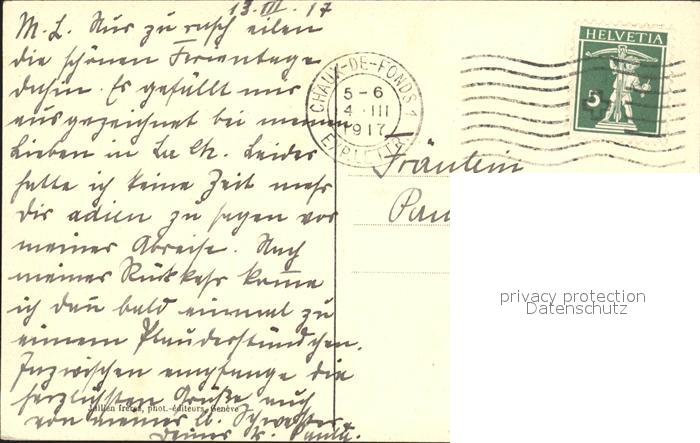 13. III. 17
M. L. Nur zu rasch eilen
die schönen Ferientage
dahin. Es gefällt mir
ausgezeichnet bei meinen
Lieben in La Ch. Leider
hatte ich keine Zeit mehr
dir adieu zu sagen vor
meiner Abreise. Nach
meiner Rückkehr komme
ich dan bald einmal zu
einem Plauderstündchen.
Inzwischen empfange die
herzlichsten Grüße auch
von meiner lb. Schwester
Deine
Jullien frères, phot.-éditeurs, Genève
HELVETIA
5
CHAUX-DE-FONDS 1
5-6
4·III
1917
Fräulein
privacy protection
Datenschutz